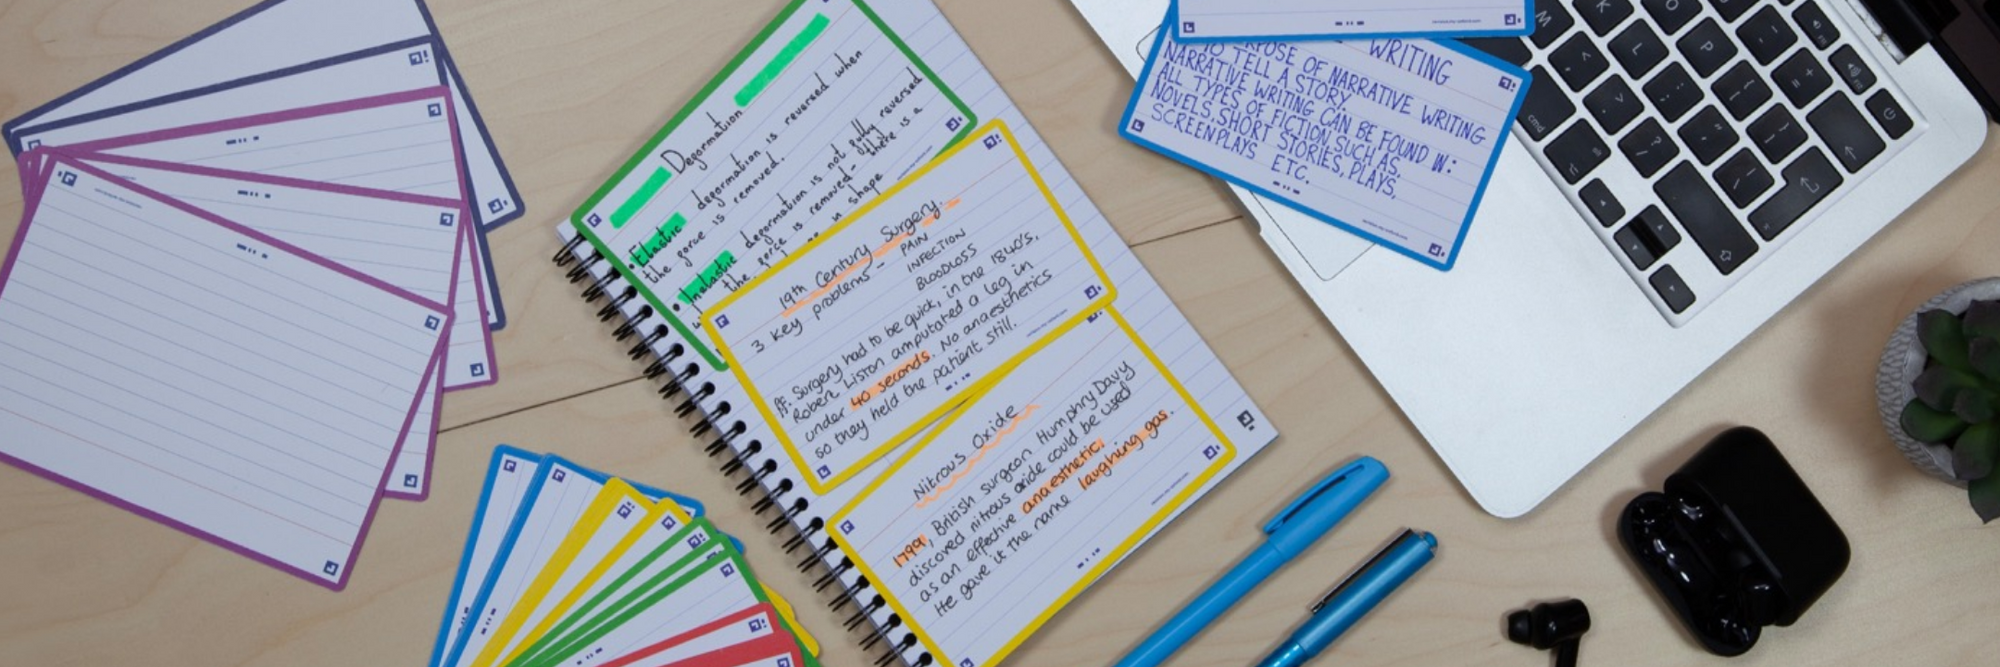 Deformation
• Elastic deformation is reversed when
the force is removed.
• Inelastic deformation is not fully reversed
the force is removed - there is a
in shape
19th Century Surgery.
3 key problems - PAIN
INFECTION
BLOODLOSS
Surgery had to be quick, in the 1840's,
Robert Liston amputated a leg in
under 40 seconds. No anaesthetics
so they held the patient still.
Nitrous Oxide
1799, British surgeon Humphry Davy
discoved nitrous oxide could be used
as an effective anaesthetic.
He gave it the name laughing gas.
WRITING
PURPOSE OF NARRATIVE WRITING
TO TELL A STORY
NARRATIVE WRITING CAN BE FOUND IN:
ALL TYPES OF FICTION, SUCH AS,
NOVELS, SHORT STORIES, PLAYS,
SCREENPLAYS ETC.
M
K
O
L
P
cmd